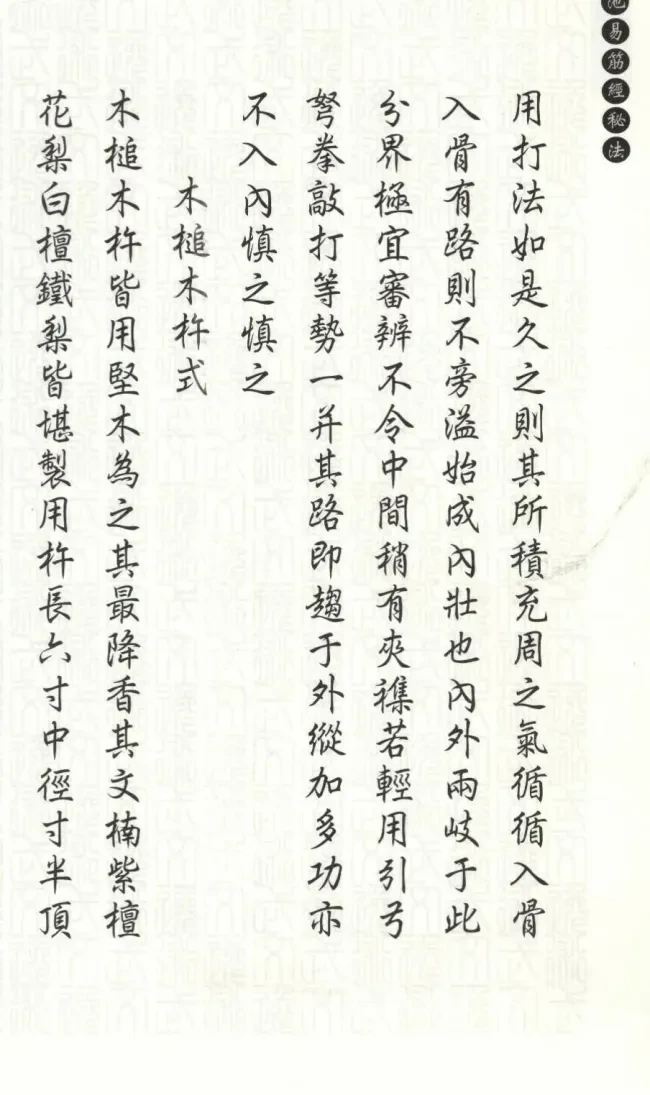 易筋經秘法
用打法如是久之則其所積充周之氣循循入骨
入骨有路則不旁溢始成內壯也內外兩岐于此
分界極宜審辨不令中間稍有夾襍若輕用引弓
弩拳敲打等勢一并其路即趨于外縱加多功亦
不入內慎之慎之
木槌木杵式
木槌木杵皆用堅木為之其最降香其文楠紫檀
花梨白檀鐵梨皆堪製用杵長六寸中徑寸半頂